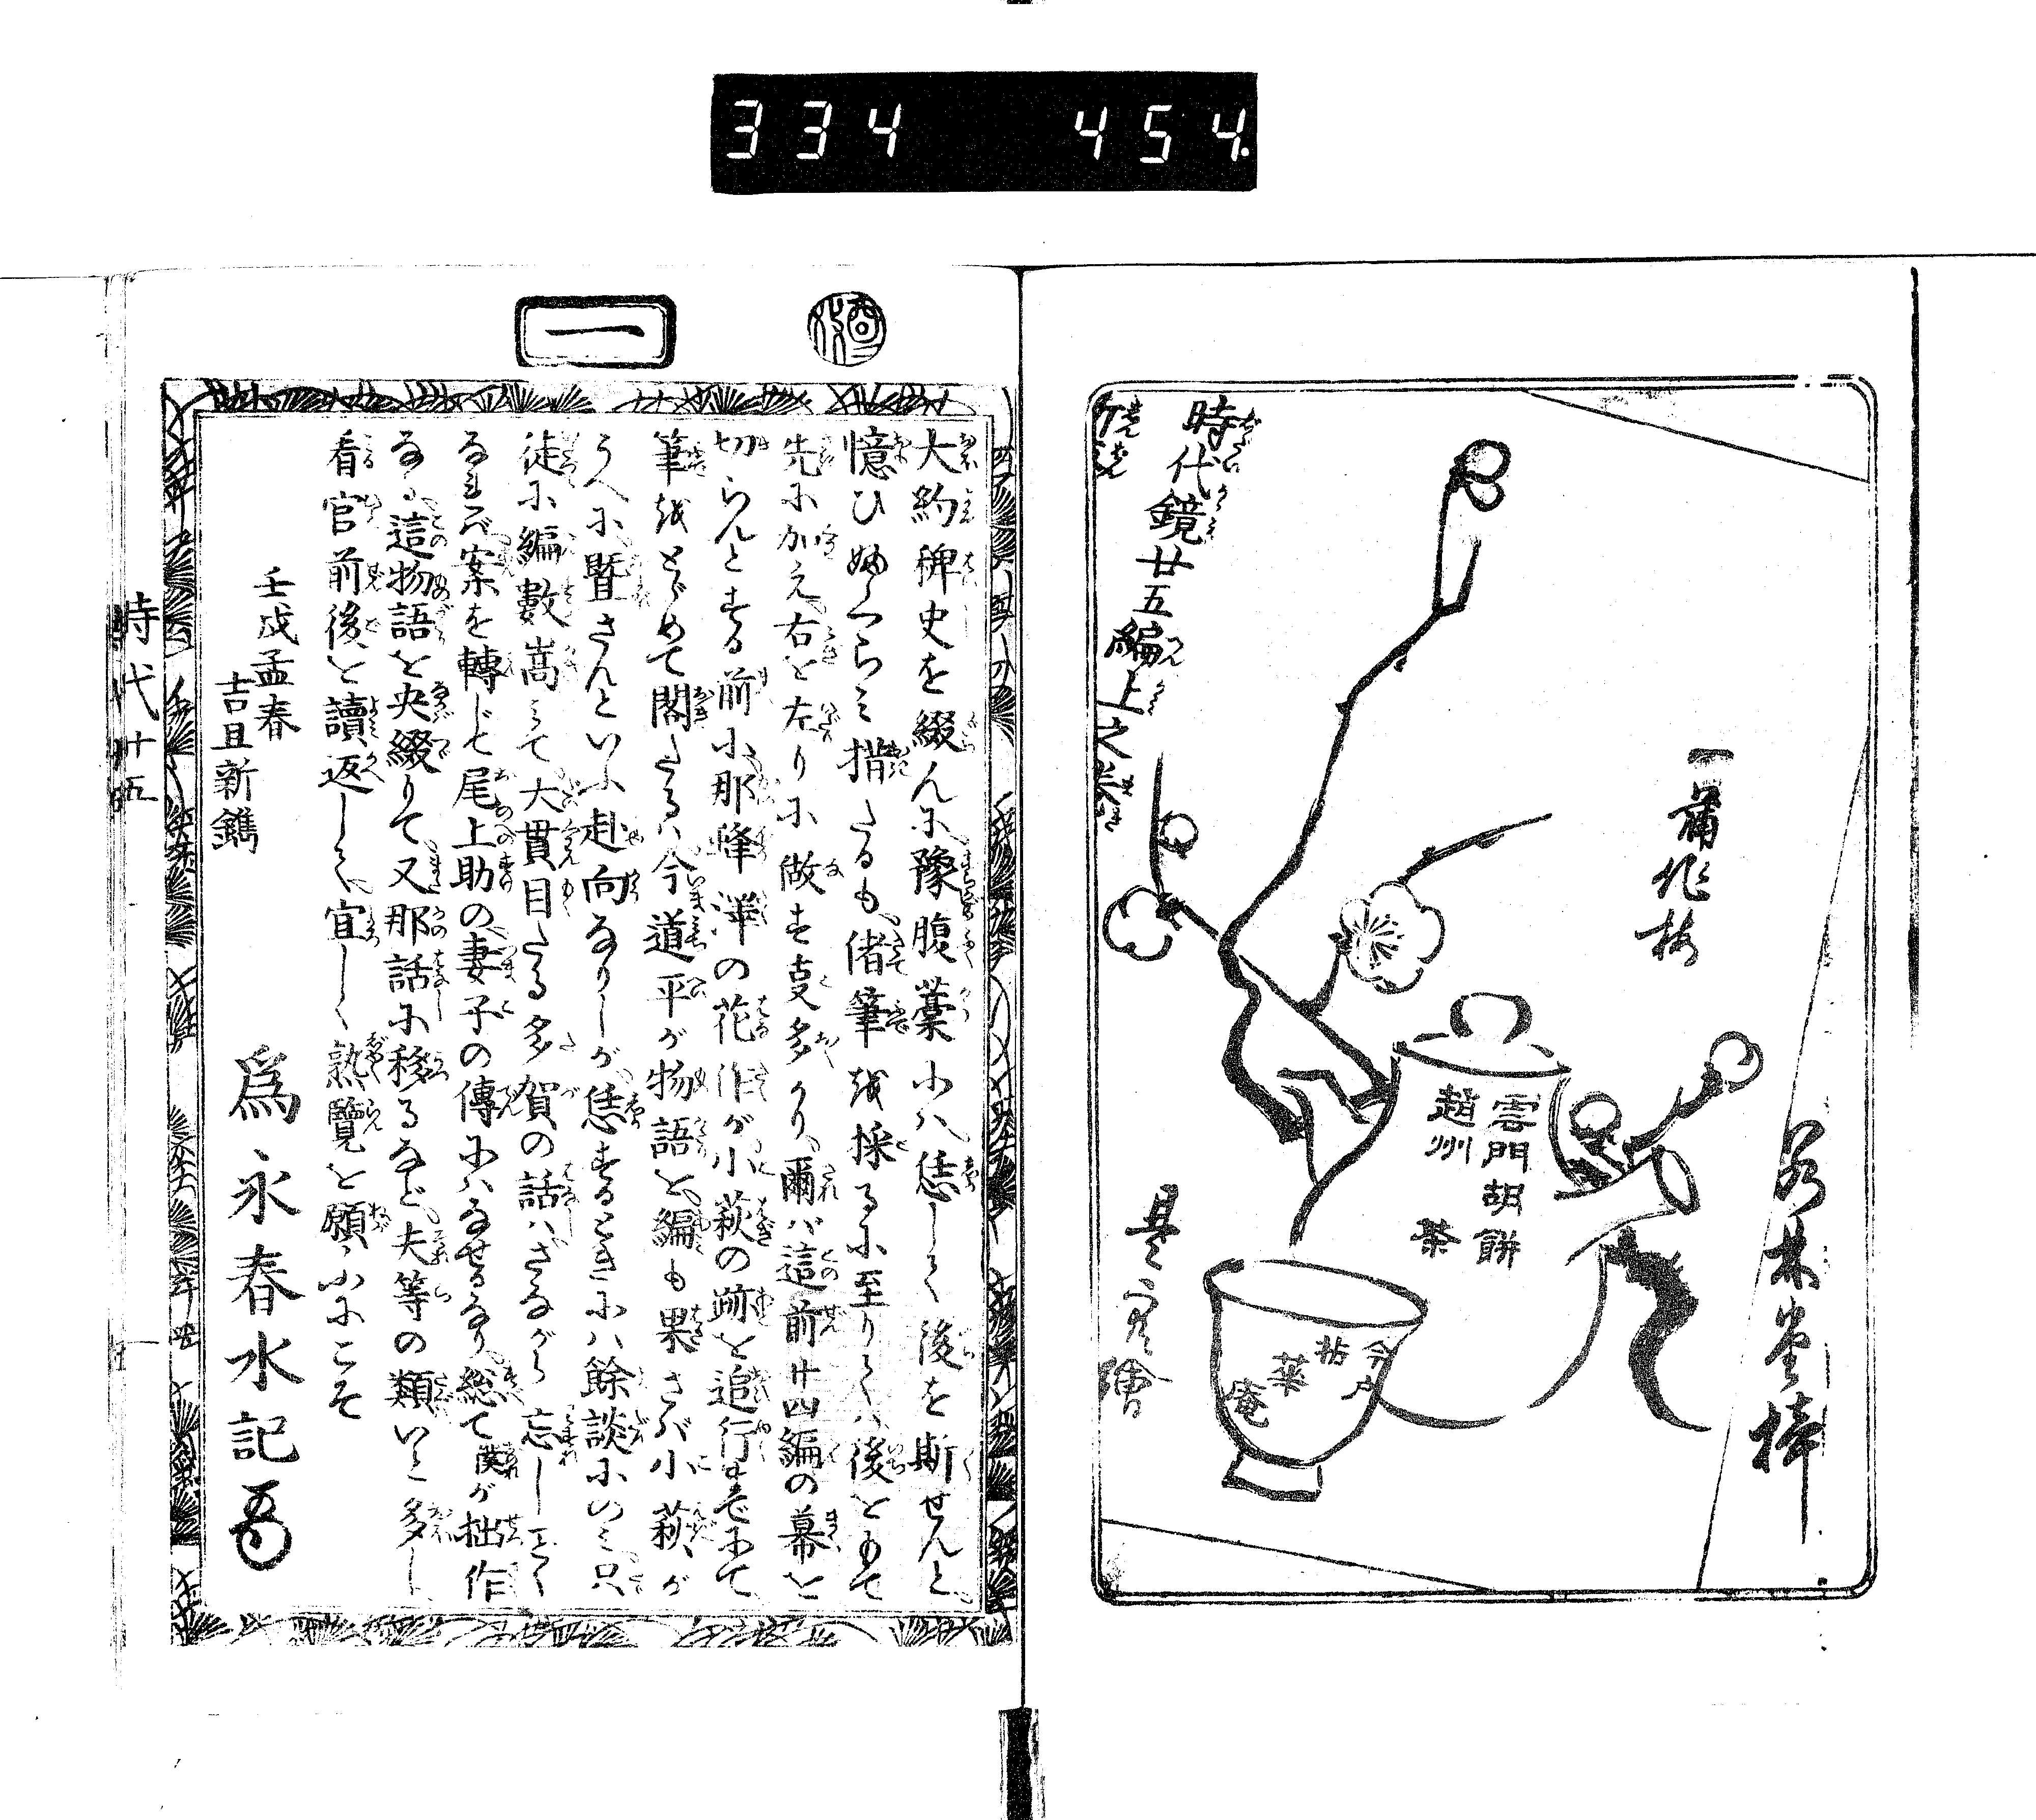 334 454
時代鏡廿五編上之巻
一蒲作梅
雲門胡餅
趙州茶
今戸
拈華
庵
是空繪
一
大約稗史を綴んに豫腹藁小ハ恁して後を斯せんと
憶ひ婦くらミ揩たるも偖筆を採るに至りてハ後をもて
先にかえ右を左りに做す叓多かり爾バ這前廿四編の幕を
切らんとする前に那峰澤の花作が小萩の跡を追行までにて
筆をとゞめて閣たるハ今道平が物語を編も果さバ小萩が
うへに曁さんといふ赴向なりしが恁するときにハ餘談にいミ只
徒に編數嵩ミて大貫目たる多賀の話ハさるながら忘しまゝ
なれバ案を轉じて尾上助の妻子の傳にハなせるなり総て僕が拙作
なる這物語を央綴りて又那話に移るなど夫等の類いと多し
看官前後を讀返して宜しく熟覽を願ふにこそ
壬戌孟春
吉旦新鐫
爲永春水記
時代廿五